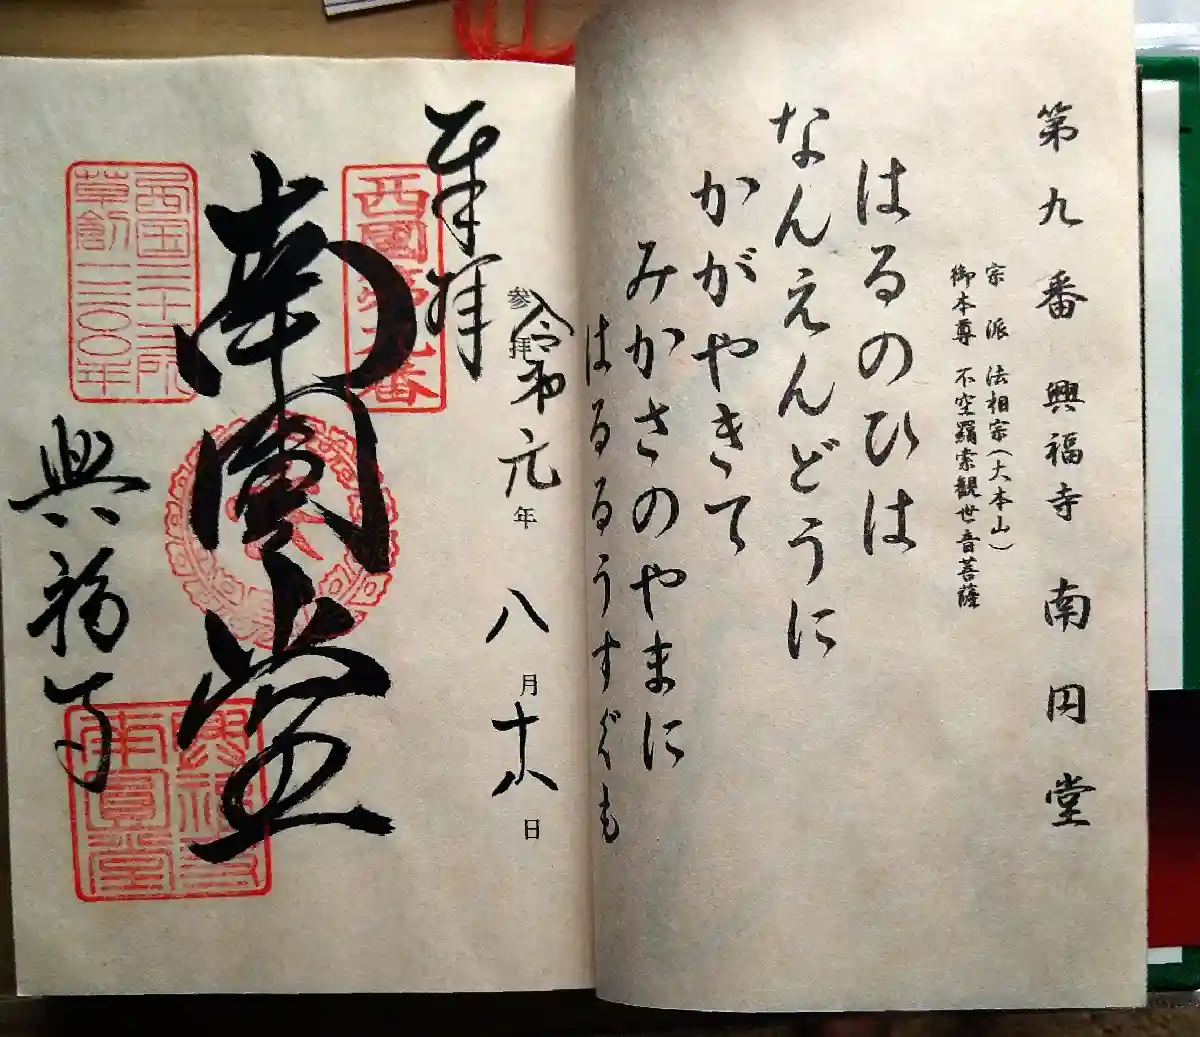 第九番 興福寺 南円堂
宗派 法相宗(大本山)
御本尊 不空羂索観世音菩薩
はるのひは
なんえんどうに
かがやきて
みかさのやまに
はるるうすぐも
参拝
令和元年八月十八日
奉拝
西國第九番
南圓堂
西国三十三所
草創一三〇〇年
興福寺
興福寺
南圓堂